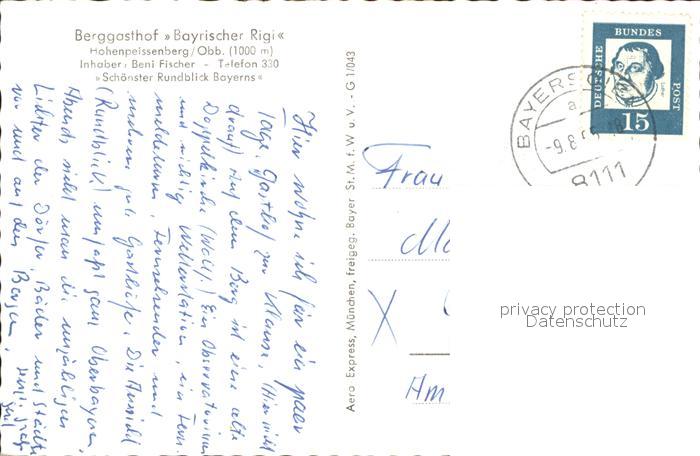 Berggasthof »Bayrischer Rigi«
Hohenpeissenberg/Obb. (1000 m)
Inhaber: Beni Fischer - Telefon 330
»Schönster Rundblick Bayerns«
Hier wohne ich für ein paar
Tage, Gasthof zur Klause. (Hier nicht
drauf) Auf dem Berg ist eine alte
Doppelkirche (Wallf.) Ein Observatorium
und wichtig Wetterstation, ein Fern-
meldeturm, Fernsehsender und
mehrere gute Gasthöfe. Die Aussicht
(Rundblick) umfaßt ganz Oberbayern,
Abends sieht man die unzähligen
Lichter der Dörfer, Bäder und Städte
vor und auf den Bergen,
Aero Express, München, Freigeg.: Bayer St. M. f. W u. V. - G 1/043
DEUTSCHE BUNDESPOST
Luther
15
BAYERSOIEN
a
-9.8.
8111
Frau
X
Am
privacy protection
Datenschutz